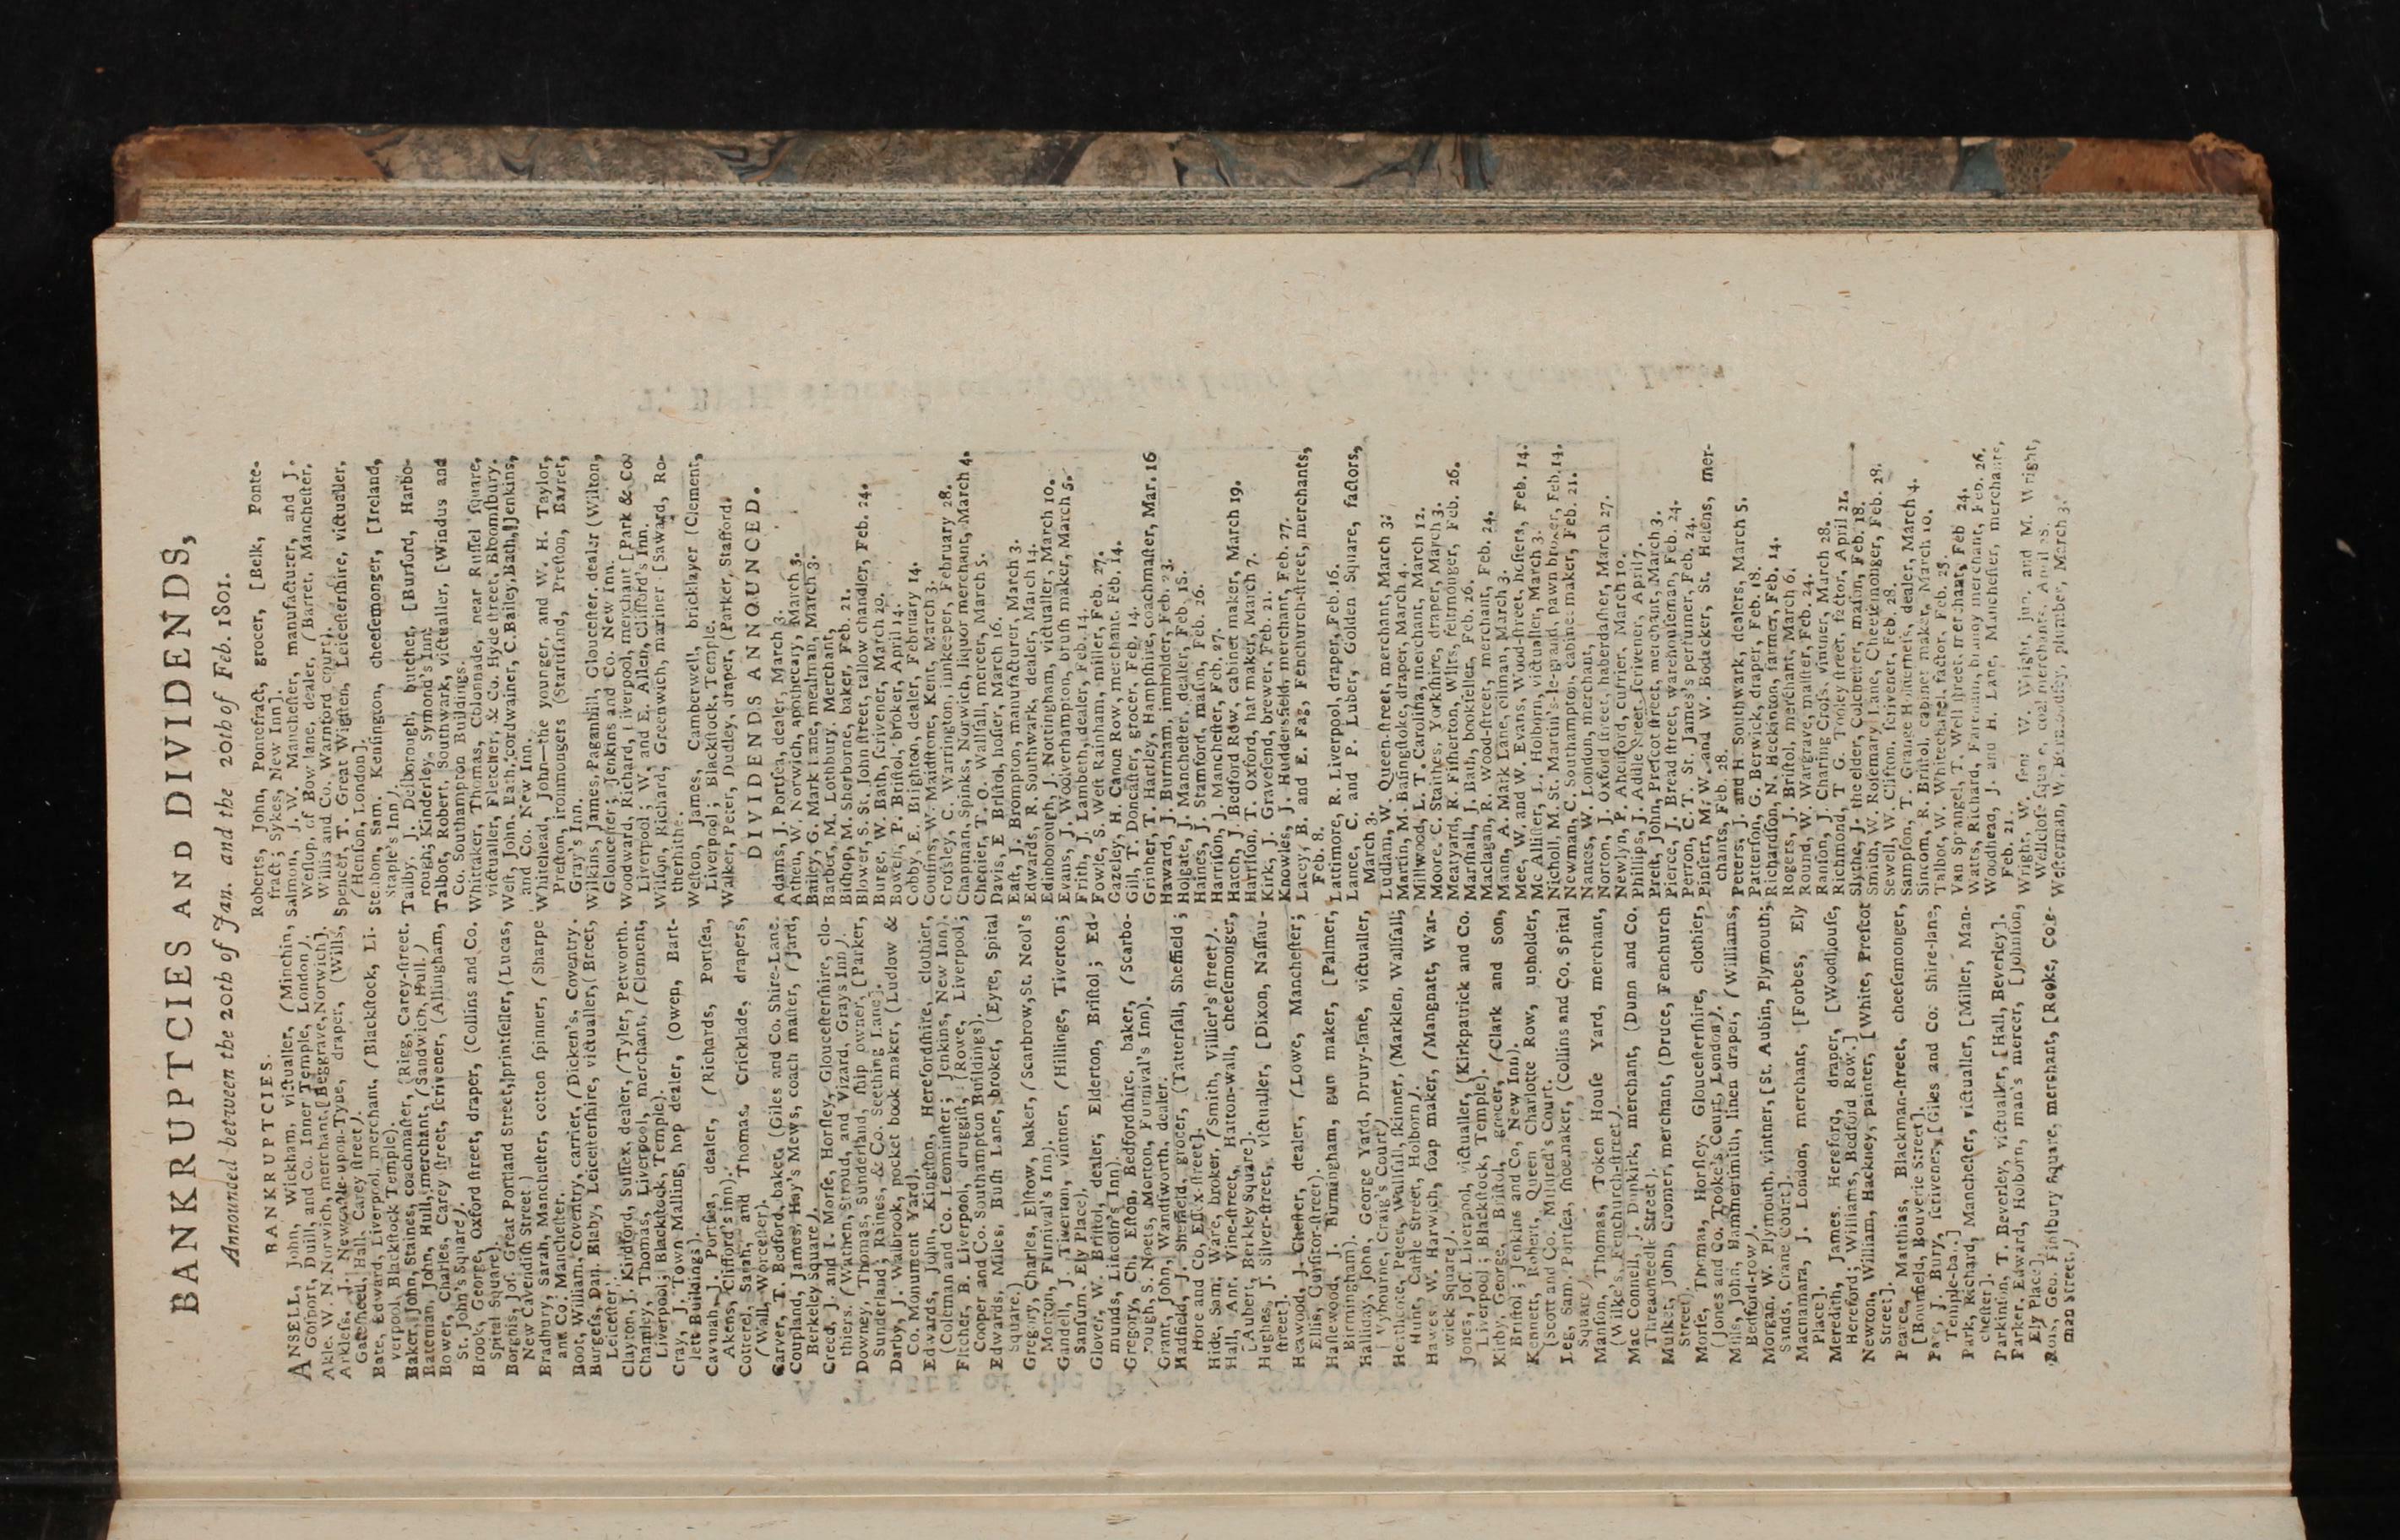 BANKRUPTCIES AND DIVIDENDS,
Announced between the 20th of Jan. and the 20th of Feb. 1801.
BANKRUPTCIES.
ANSELL, John, Wickham, victualler, (Minchin,
Gosport, Duill, and Co. Inner Temple, London).
Akle. W. N. Norwich, merchant, [Beggrave, Norwich].
Arkless, J. Newcastle-upon-Tyne, draper, (Wills,
Gateshead, Hall, Carey street).
Bate, Edward, Liverpool, merchant, (Blackstock, Li-
verpool, Blackstock Temple).
Baker, John, Staines, coachmaster, (Rigg, Carey-street.
Bateman, John, Hull, merchant, (Sandwich, Hull.)
Bower, Charles, Carey street, scrivener, (Allingham,
St. John's Square).
Brook, George, Oxford street, draper, (Collins and Co.
Spital Square).
Borghis, Jos. Great Portland Street, printseller, (Lucas,
New Cavendish Street.)
Bradbury, Sarah, Manchester, cotton spinner, (Sharpe
and Co. Manchester.
Boot, William, Coventry, carrier, (Dicken's, Coventry.
Burgess, Dan. Blaby, Leicestershire, victualler, (Breet,
Leicester.
Clayton, J. Kirdford, Sussex, dealer, (Tyler, Petworth.
Chamley, Thomas, Liverpool, merchant, (Clement,
Liverpool; Blackstock, Temple).
Cray, J. Town Malling, hop dealer, (Owen, Bart-
lett Buildings).
Cavanah, J. Portsea, dealer, (Richards, Portsea,
Akens, Clifford's inn).
Cotterel, Sarah, and Thomas, Cricklade, drapers,
(Wall, Worcester).
Carver, T. Bedford, baker, (Giles and Co. Shire-Lane.
Coupland, James, Hay's Mews, coach master, (Yard,
Berkeley Square).
Creed, J. and I. Morse, Horsley, Gloucestershire, clo-
thiers. (Wathen, Stroud, and Vizard, Grays Inn).
Downey, Thomas, Sunderland, ship owner, [Parker,
Sunderland; Raines, & Co. Seething Lane].
Darby, J. Walbrook, pocket book maker, (Ludlow &
Co. Monument Yard).
Edwards, John, Kingston, Herefordshire, clothier,
(Coleman and Co. Leominster; Jenkins, New Inn).
Fltcher, B. Liverpool, druggist, (Rowe, Liverpool;
Cooper and Co. Southampton Buildings).
Edwards, Miles, Bush Lane, broker, [Eyre, Spital
Square.)
Gregory, Charles, Elstow, baker, (Scarbrow, St. Neol's
Morton, Furnival's Inn).
Gandell, J. Tiverton, vintner, (Hillinge, Tiverton;
Sansum, Ely Place).
Glover, W. Bristol, dealer, Elderton, Bristol; Ed-
munds, Lincoln's Inn).
Gregory, Ch. Elston, Bedfordshire, baker, (Scarbo-
rough, S. Noets, Morton, Furnival's Inn).
Grant, John, Wandsworth, dealer.
Hadfield, J. Sheffield, grocer, (Tattersall, Sheffield;
Hore and Co. Essex-street].
Hide, Sam. Ware, broker, (Smith, Villier's street).
Hall, Ant. Vine-street, Hatton-wall, cheesemonger,
[Aubert, Berkley Square].
Hughes, J. Silver-street, victualler, [Dixon, Nassau-
street].
Heawood, J. Chester, dealer, (Lowe, Manchester;
Ellis, Cursitor-street).
Haslewood, J. Birmingham, gun maker, [Palmer,
Birmingham).
Halliday, John, George Yard, Drury-lane, victualler,
(Vybourne, Craig's Court)
Heathcote, Peter, Wallsall, skinner, (Marklen, Wallsall;
Hunt, Castle Street, Holborn).
Hawes, W. Harwich, soap maker, (Mangnatt, War-
wick Square).
Jones, Jos. Liverpool, victualler, (Kirkpatrick and Co.
Liverpool; Blackstock, Temple).
Kirby, George, Bristol, grocer, (Clark and Son,
Bristol; Jenkins and Co. New Inn).
Kennett, Robert, Queen Charlotte Row, upholder,
(Scott and Co. Mildred's Court.
Leg, Sam. Portsea, shoemaker, (Collins and Co. Spital
Square)
Manson, Thomas, Token House Yard, merchant,
(Wilke's, Fenchurch-street).
Mac Connell, J. Dunkirk, merchant, (Dunn and Co.
Threadneedle Street).
Musket, John, Cromer, merchant, (Druce, Fenchurch
Street).
Morse, Thomas, Horsley, Gloucestershire, clothier,
(Jones and Co. Tooke's Court, London).
Mills, John, Hammersmith, linen draper, (Williams,
Bedford-row).
Morgan, W. Plymouth, vintner, [St. Aubin, Plymouth;
Sands, Crane Court].
Macnamara, J. London, merchant, [Forbes, Ely
Place].
Meredith, James, Hereford, draper, [Woodhouse,
Hereford; Williams, Bedford Row.]
Newton, William, Hackney, painter, [White, Prescot
Street].
Pearce, Matthias, Blackman-street, cheesemonger,
[Bourfield, Bouverie Street].
J. Bury, scrivener, [Giles and Co. Shire-lane,
Temple-bar.]
Park, Richard, Manchester, victualler, [Miller, Man-
chester].
Parkinson, T. Beverley, victualler, [Hall, Beverley].
Parker, Edward, Holborn, man's mercer, [Johnson,
Ely Place].
Ross, Geo. Finsbury square, merchant, [Rooke, Cole-
man Street.)
Roberts, John, Pontefract, grocer, [Belk, Ponte-
fract; Sykes, New Inn].
Salmon, J. W. Manchester, manufacturer, and J.
Weslop, of Bow lane, dealer, (Barret, Manchester,
Willis and Co. Warnford court).
Spencer, T. Great Wigsten, Leicestershire, victualler,
(Henson, London].
Stenbon, Sam. Kensington, cheesemonger, [Ireland,
Staple's Inn).
Tailby, J. Desborough, butcher, [Burford, Harbo-
rough; Kinderley, Symond's Inn.
Talbot, Robert, Southwark, victualler, [Windus and
Co. Southampton Buildings.
Whittaker, Thomas, Colonnade, near Russel square,
victualler, Fletcher, & Co. Hyde street, Bloomsbury.
West, John, Bath, cordwainer, C. Bailey, Bath, Jenkins,
and Co. New Inn.
Whitehead, John—the younger, and W. H. Taylor,
Preston, ironmongers (Startifand, Preston, Barret,
Gray's Inn.
Wilkins, James, Paganhill, Gloucester, dealer (Wilton,
Gloucester; Jenkins and Co. New Inn.
Woodward, Richard, Liverpool, merchant [Park & Co.
Liverpool; W. and E. Allen, Clifford's Inn.
Wilson, Richard, Greenwich, mariner [Saward, Ro-
therhithe.
Weston, James, Camberwell, bricklayer (Clement,
Liverpool; Blackstock, Temple.
Walker, Peter, Dudley, draper, (Parker, Stafford.
DIVIDENDS ANNOUNCED.
Adams, J. Portsea, dealer, March 3.
Athen, W. Norwich, apothecary, March 3.
Bailey, G. Mark Lane, mealman, March 3.
Barber, M. Lothbury. Merchant,
Bishop, M. Sherborne, baker, Feb. 21.
Blower, S. St. John street, tallow chandler, Feb. 24.
Burge, W. Bath, scrivener, March 20.
Bowen, P. Bristol, broker, April 14.
Cobby. E. Brighton, dealer, February 14.
Cousins, W. Maidstone, Kent, March 3.
Crossley, C. Warrington, innkeeper, February 28.
Chapman, Spinks, Norwich, liquor merchant, March 4.
Chenier, T. O. Wallsall, mercer, March 5.
Davis, E. Bristol, hosier, March 16.
East, J. Brompton, manufacturer, March 3.
Edwards, R. Southwark, dealer, March 14.
Edinborough, J. Nottingham, victualler, March 10.
Evans, J. Woolverhampton, brush maker, March 5.
Frith, J. Lambeth, dealer, Feb. 14.
Fowle, S. West Rainham, miller, Feb. 27.
Gazeley, H. Canon Row, merchant. Feb. 14.
Gill, T. Doncaster, grocer, Feb. 14.
Grinher, T. Hartley, Hampshire, coachmaster, Mar. 16
Haward, J. Burnham, innholder, Feb. 23.
Holgate, J. Manchester, dealer, Feb. 18.
Haines, J. Stamford, mason, Feb. 26.
Harrison, J. Manchester, Feb. 27.
Hatch, J. Bedford Row, cabinet maker, March 19.
Harrison, T. Oxford, hat maker, March 7.
Kirk, J. Gravesend, brewer, Feb. 21.
Knowles, J. Huddersfield, merchant, Feb. 27.
Lacey, B. and E. Fag, Fenchurch-street, merchants,
Feb. 8.
Lattimore, R. Liverpool, draper, Feb. 16.
Lance, C. and P. Luber, Golden Square, factors,
March 3.
Ludlam, W. Queen-street, merchant, March 3.
Martin, M. Basingstoke, draper, March 4.
Millwood, L. T. Carolina, merchant, March 12.
Moore, C. Staithes, Yorkshire, draper, March 3.
Meatyard, R. Fisherton, Wilts, felmonger, Feb. 26.
Marshall, J. Bath, bookseller, Feb. 26.
Maclagan, R. Wood-street, merchant, Feb. 24.
Mann, A. Mark Lane, oilman, March 3.
Mee, W. and W. Evans, Wood-street, hosiers, Feb. 14.
Mc Allister, J. Holborn, victualler, March 3.
Nicholl, M. St. Martin's-le-grand, pawn broker, Feb. 14.
Newman, C. Southampton, cabinet maker, Feb. 21.
Nantes, W. London, merchant,
Norton, J. Oxford street, haberdasher, March 27.
Newlyn, P. Alresford, currier, March 10.
Phillips, J. Addle street, scrivener, April 7.
Prest, John, Prescot street, merchant, March 3.
Pierce, J. Bread street, warehouseman, Feb. 24.
Perron, C. T. St. James's perfumer, Feb. 24.
Pinserr, M. W. and W. Bodecker, St. Helens, mer-
chants, Feb. 28.
Peters, J. and H. Southwark, dealers, March 5.
Patterson, G. Berwick, draper, Feb. 18.
Richardson, N. Heckinton, farmer, Feb. 14.
Rogers, J. Bristol, merchant, March 6.
Round, W. Wargrave, maltster, Feb. 24.
Ranson, J. Charing Cross, vintner, March 28.
Richmond, T. G. Tooley street, factor, April 21.
Slythe, J. the elder, Colchester, mason, Feb. 18.
Smith, W. Rosemary Lane, Cheesemonger, Feb. 28.
Sewell, W. Clifton, scrivener, Feb. 28.
Sampson, T. Grange Holderness, dealer, March 4.
Sincom, R. Bristol, cabinet maker, March 10.
Talbot, W. Whitechapel, factor, Feb. 25.
Van Sprangel, T. Well street, merchant, Feb 24.
Watts, Richard, Fareham, brandy merchant, Feb. 26.
Woodhead, J. and H. Lane, Manchester, merchants,
Feb. 21.
Wright, W. sen. W. Wright, jun. and M. Wright,
Wellclose square, coal merchants, April 28.
Westerman, W. Bermondsey, plumber, March 3.